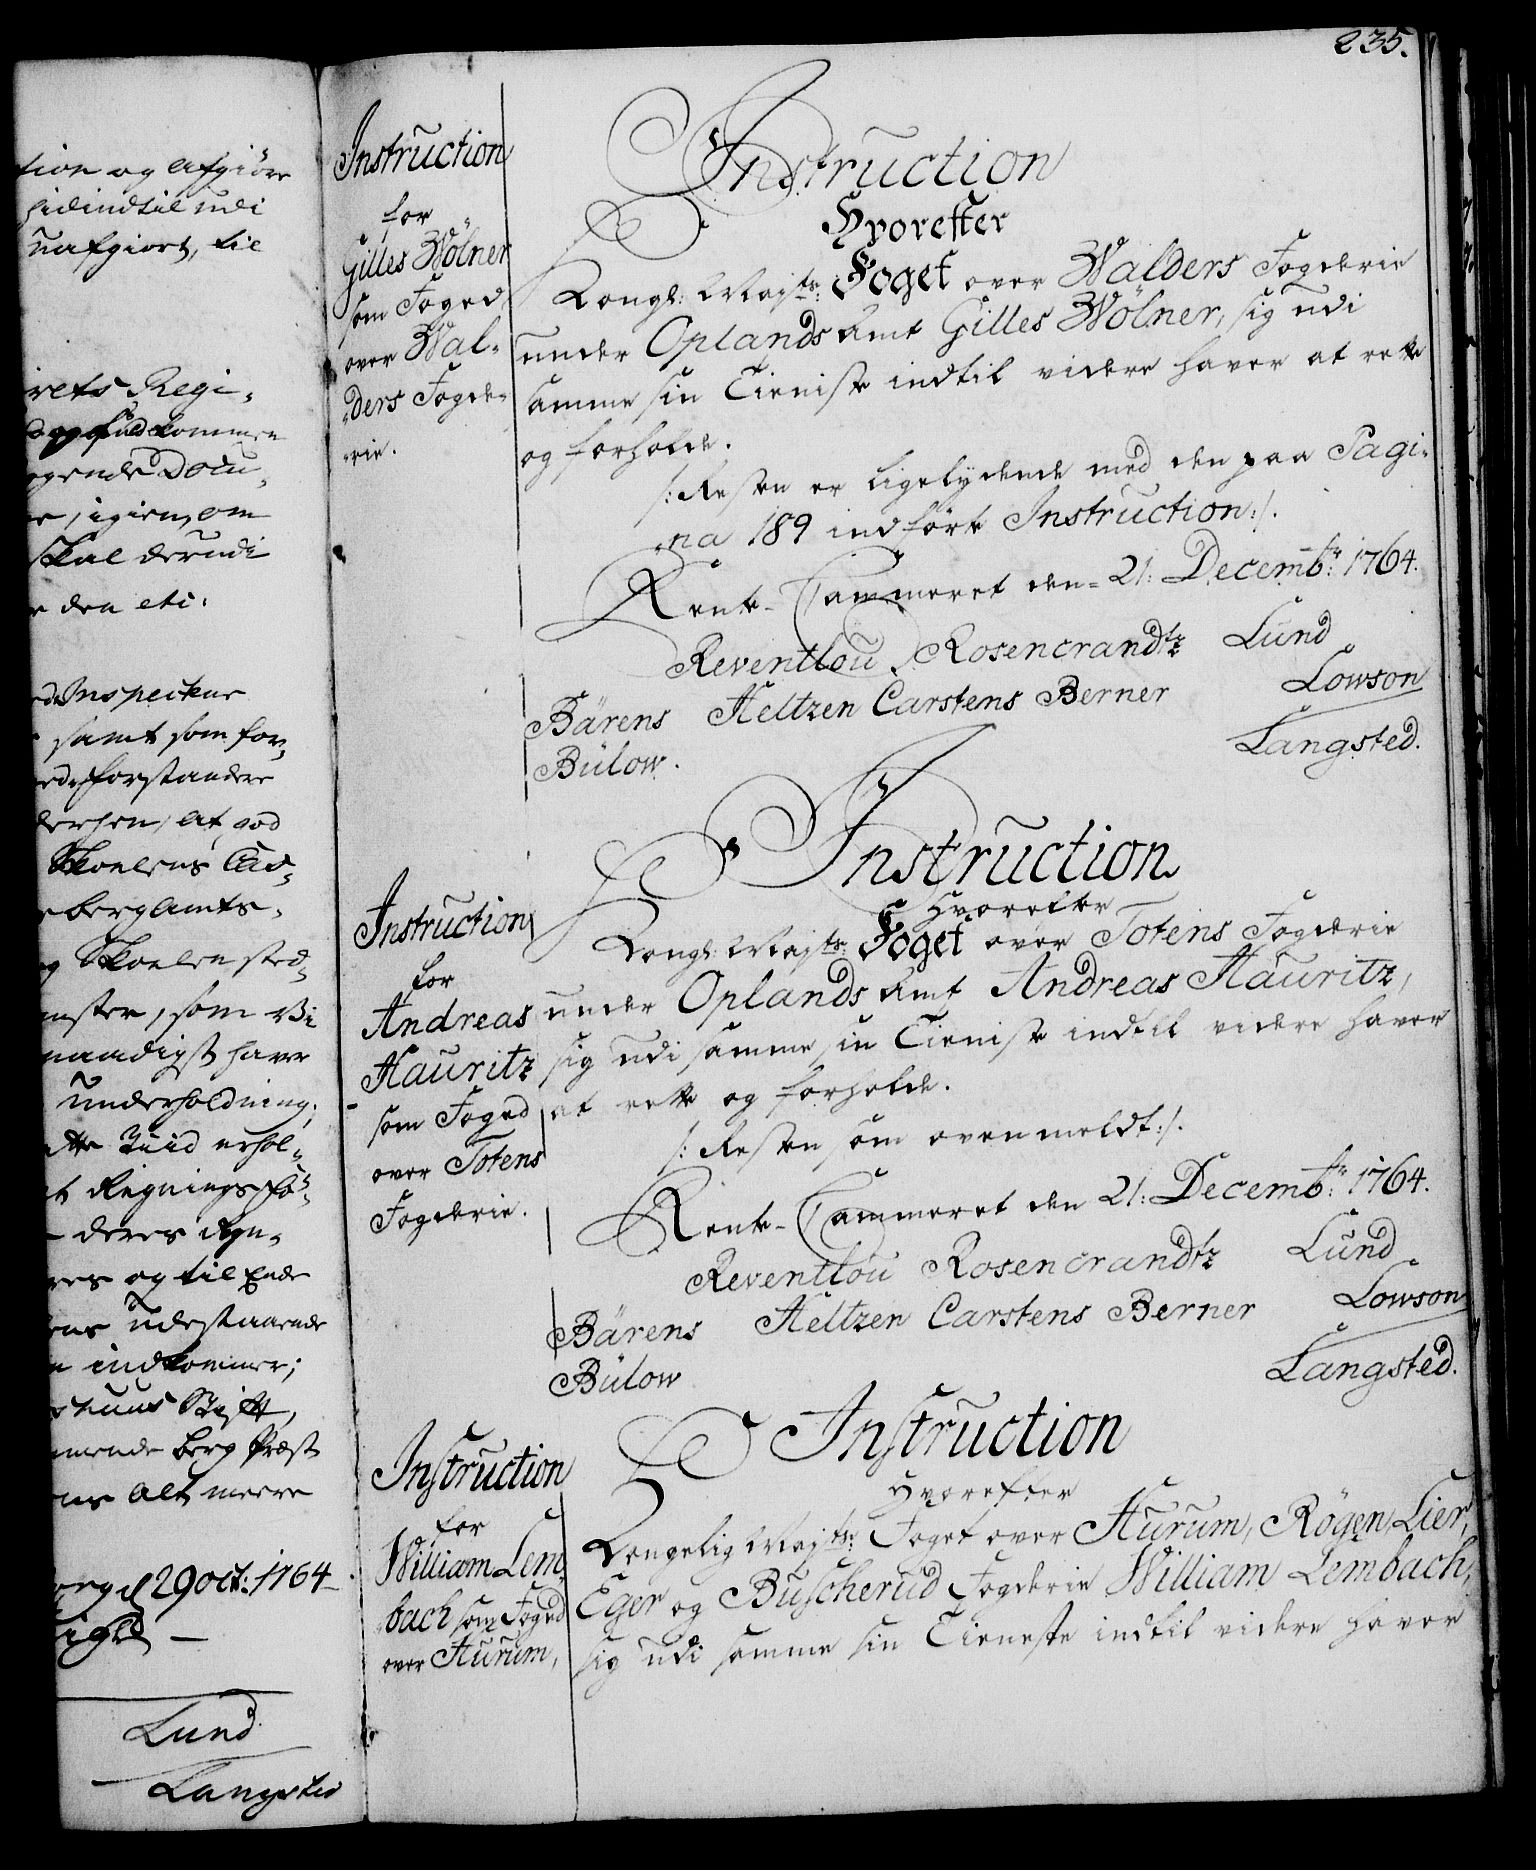 tion og afgiøre
hidindtil udi
uafgiort, til
irets Regi„
og fuldkommen
ogende Docu„
igien, om
skal derudi
den eti.
Inspecteur
samt som for„
forstandere
derhen, at god
Skoelens Cas„
berg Amts„
og Skoelen sted„
enster, som Vi
naadigst haver
underholdning,
Tiid erhol„
et Regningsfø„
deres Ryn„
res og til Ende
ens udestaaende
indkommer;
huus Stift,
mende berg Præst
ens Alt meere
borg d 29 oct: 1764
Lund
Langsted
235.
Instruction
for
Gilles Wölner
som Foged
over Wal„
„ders Fogde„
„rie.
Instruction
Hvorefter
Kongl: Mayts: Foget over Walders Fogderie
under Oplands Amt Gilles Wölner, sig udi
samme sin Tieniste indtil videre haver at rette
og forholde.
/: Resten er ligelydende med den paa Pagi„
„na 189 indførte Instruction :/.
Rente-Cammeret den 21: Decembr: 1764.
Reventlou Rosencrandtz Lund
Bärens Heltzen Carstens Berner Lowson
Bülow. Langsted.
Instruction
for
Andreas
Hauritz
som Foged
over Totens
Fogderie.
Instruction
Hvorefter
Kongl: Mayts: Foget over Totens Fogderie
under Oplands Amt Andreas Hauritz,
sig udi samme sin Tieniste indtil videre haver
at rette og forholde.
/: Resten som ovenmeldt :/.
Rente-Cammeret den 21: Decembr: 1764.
Reventlou Rosencrandtz Lund
Bärens Heltzen Carstens Berner Lowson
Bülow Langsted.
Instruction
for
William Lem„
„bach som Foged
over Hurum,
Instruction
Hvorefter
Kongelig Mayts: Foget over Hurum, Røgen, Lier,
Eger og Buscherud Fogderie William Lembach,
sig udi samme sin Tieneste indtil videre haver